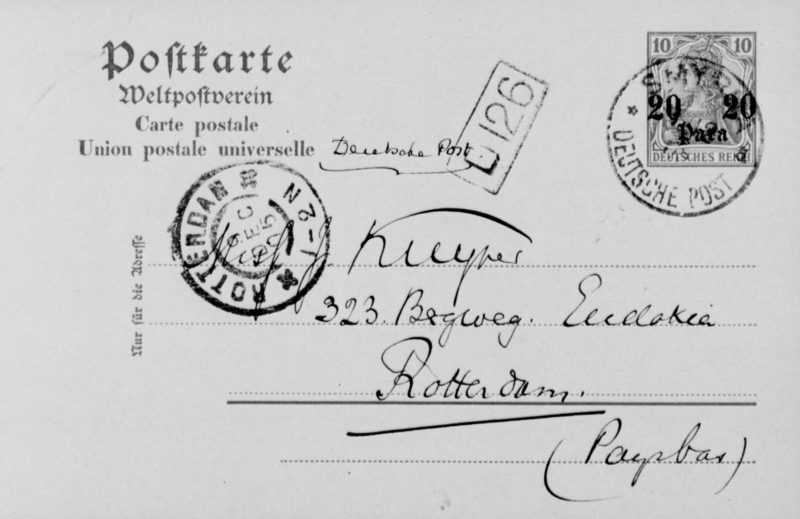 Postkarte
Weltpostverein
Carte postale
Union postale universelle
Deutsche Post
126
10 10
20 20
Para
DEUTSCHES REICH
SMYRNA
DEUTSCHE POST
ROTTERDAM
1-2 N
DEC
Nur für die Adresse
Miss J. Kuyper
323. Bergweg. Eudokia
Rotterdam.
(Paysbas)